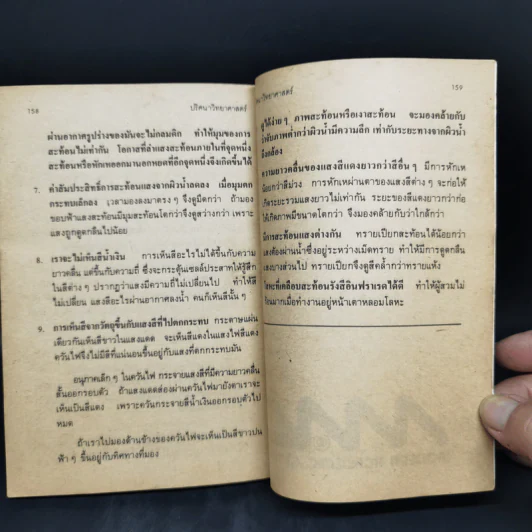 158
ปริศนาวิทยาศาสตร์
ผ่านอากาศรูปร่างของมันจะไม่กลมดิก ทำให้มุมของการ
สะท้อนไม่เท่ากัน โอกาสที่ลำแสงสะท้อนภายในที่จุดหนึ่งจะ
สะท้อนหรือหักเหออกมานอกหยดที่อีกจุดหนึ่งจึงเกิดขึ้นได้
7. ค่าสัมประสิทธิ์การสะท้อนแสงจากผิวน้ำลดลง เมื่อมุมตก
กระทบเล็กลง เวลามองลงมาตรง ๆ จึงดูมืดกว่า ถ้ามอง
ขอบฟ้าแสงสะท้อนมีมุมสะท้อนโตกว่าจึงดูสว่างกว่า เพราะ
แสงถูกดูดกลืนไปน้อย
8. เราจะไม่เห็นสีน้ำเงิน การเห็นสีอะไรไม่ได้ขึ้นกับความ
ยาวคลื่น แต่ขึ้นกับความถี่ ซึ่งจะกระตุ้นเซลล์ประสาทให้รู้สึก
ในสีต่าง ๆ ปรากฏว่าแสงมีความถี่ไม่เปลี่ยนไป ทำให้สี
ไม่เปลี่ยน แสงสีอะไรผ่านอากาศลงน้ำ คนก็เห็นสีนั้น ๆ
9. การเห็นสีจากวัตถุขึ้นกับแสงสีที่ไปตกกระทบ กระดาษแผ่น
เดียวกันเห็นสีขาวในแสงแดด จะเห็นสีแดงในแสงไฟสีแดง
ควันไฟจึงไม่มีสีที่แน่นอนขึ้นอยู่กับแสงที่ตกกระทบมัน
อนุภาคเล็ก ๆ ในควันไฟ กระจายแสงสีที่มีความยาวคลื่น
สั้นออกรอบตัว ถ้าแสงแดดส่องผ่านควันไฟมายังตาเราจะ
เห็นเป็นสีแดง เพราะควันกระจายสีน้ำเงินออกรอบตัวไป
หมด
ถ้าเราไปมองด้านข้างของควันไฟจะเห็นเป็นสีขาวปน
ฟ้า ๆ ขึ้นอยู่กับทิศทางที่มอง
วิทยาศาสตร์
159
ได้ง่าย ๆ ภาพสะท้อนหรือเงาสะท้อน จะมองคล้ายกับ
ภาพต่ำกว่าผิวน้ำมีความลึก เท่ากับระยะทางจากผิวน้ำ
ความยาวคลื่นของแสงสีแดงยาวกว่าสีอื่น ๆ มีการหักเห
น้อยกว่าสีม่วง การหักเหผ่านตาของแสงสีต่าง ๆ จะก่อให้
เกิดระยะรวมแสงยาวไม่เท่ากัน ระยะของสีแดงยาวกว่าก่อ
ให้เกิดภาพมีขนาดโตกว่า จึงมองคล้ายกับว่าใกล้กว่า
มีการสะท้อนแสงต่างกัน ทรายเปียกสะท้อนได้น้อยกว่า
แสงต้องผ่านน้ำซึ่งอยู่ระหว่างเม็ดทราย ทำให้มีการดูดกลืน
แสงบางส่วนไป ทรายเปียกจึงดูสีคล้ำกว่าทรายแห้ง
ที่เคลือบสะท้อนรังสีอินฟราเรดได้ดี ทำให้ผู้สวมไม่
ร้อนมากเมื่อทำงานอยู่หน้าเตาหลอมโลหะ